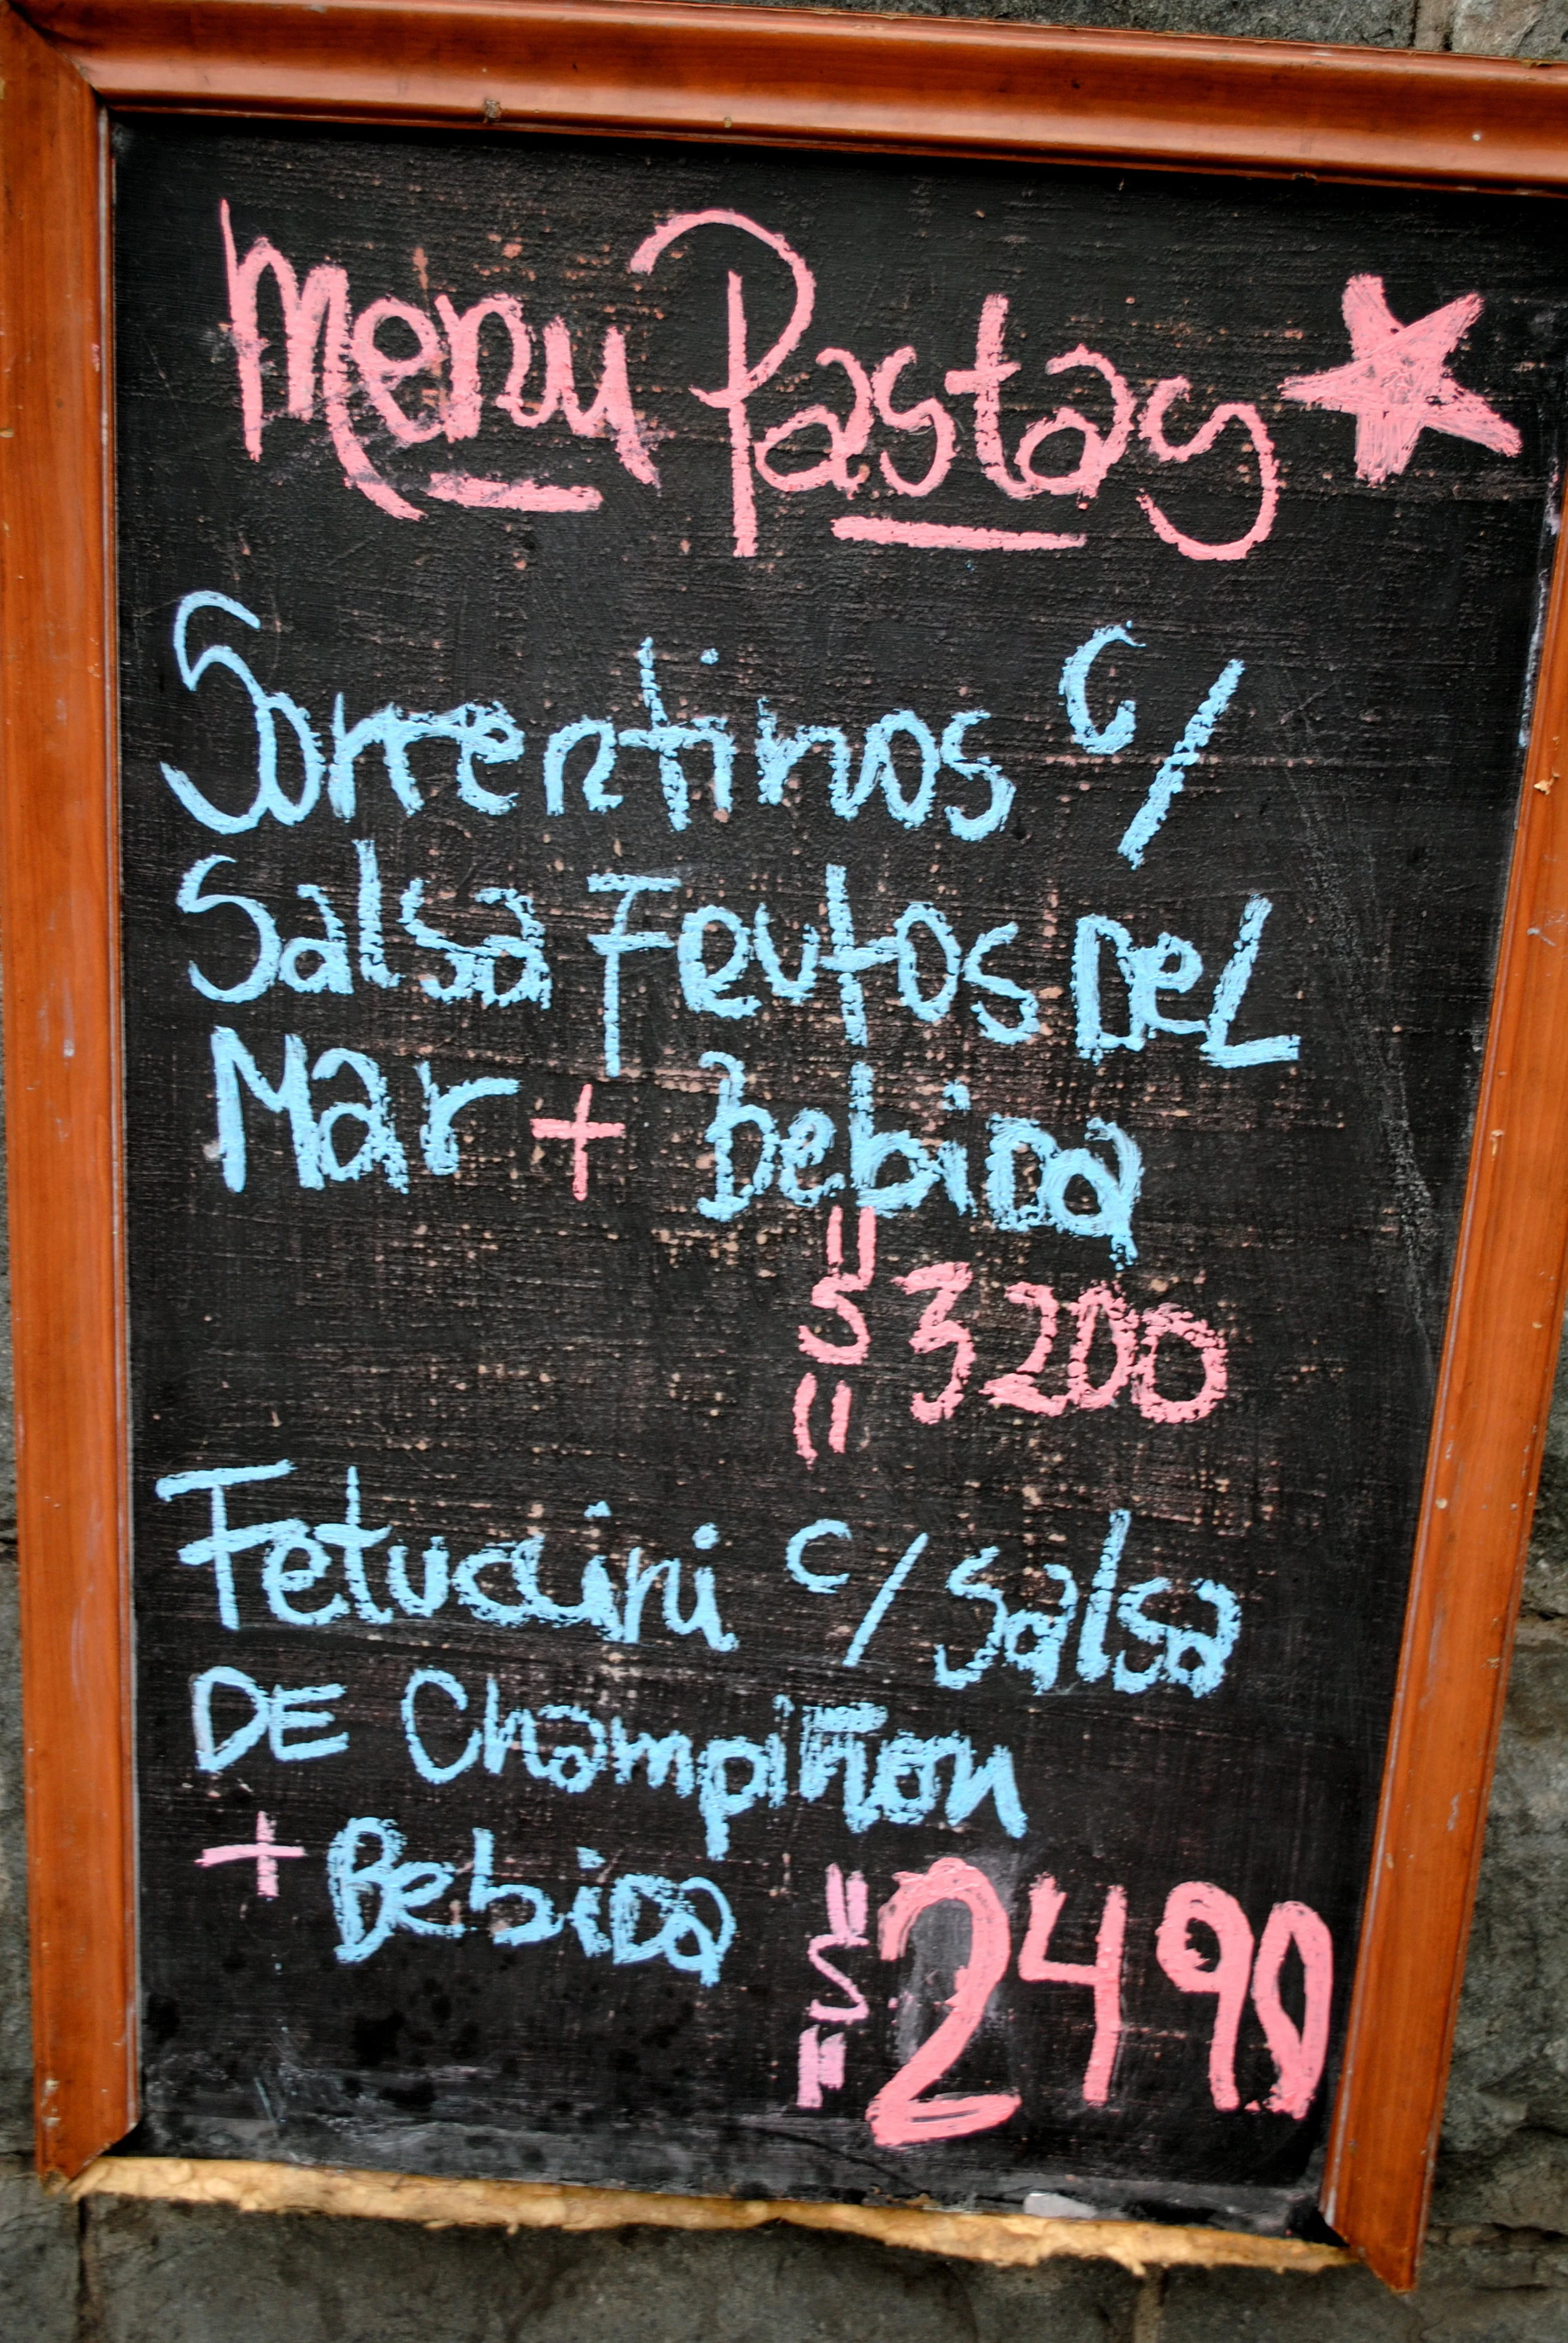 Menu Pastas
Sorrentinos c/
Salsa Feutos Del
Mar + bebida
$ 3200
Fetuccini c/ Salsa
DE Champiñon
+ Bebida $ 2490